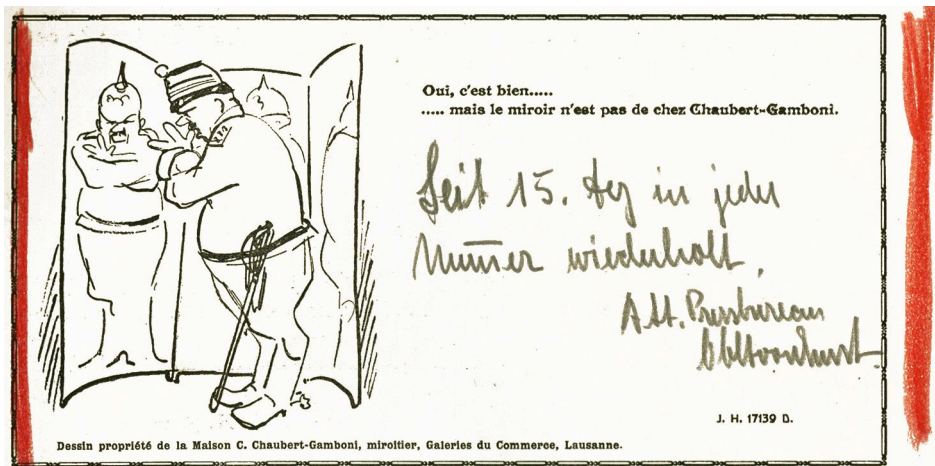 Oui, c'est bien.....
..... mais le miroir n'est pas de chez Chaubert-Gamboni.
Seit 15. Dez in jeder
Num̄er wiederholt.
Pressbureau
J. H. 17139 D.
Dessin propriété de la Maison C. Chaubert-Gamboni, miroitier, Galeries du Commerce, Lausanne.